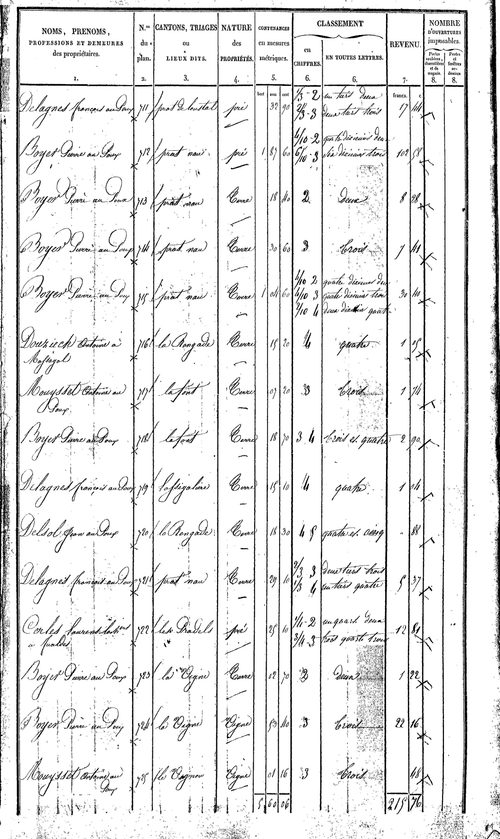 NOMS, PRENOMS, PROFESSIONS ET DEMEURES des propriétaires. 1. | N.os du plan. 2. | CANTONS, TRIAGES ou LIEUX DITS. 3. | NATURE des PROPRIÉTÉS. 4. | CONTENANCES en mesures métriques. 5. | CLASSEMENT en CHIFFRES. 6. EN TOUTES LETTRES. 6. | REVENU. 7. | NOMBRE D'OUVERTURES imposables. 8. 8.
francs. c.
Delagnes françois au Poux 711 pré 32 90 1/3-2 2/3-3 un tiers deux deux tiers trois 17 44
Boyer Pierre au Poux 712 prat nau pré 1 87 60 4/10-2 6/10-3 quatre dixièmes deux six dixièmes trois 102 58
Boyer Pierre au Poux 713 prat nau Terre 18 40 2 deux 8 28
Boyer Pierre au Poux 714 prat nau Terre 30 60 3 trois 7 41
Boyer Pierre au Poux 715 prat nau Terre 1 04 60 4/10 2 4/10 3 2/10 4 quatre dixièmes deux quatre dixièmes trois deux dixièmes quatre 30 40
Douziech Antoine à 716 la Rongade Terre 15 20 4 quatre 1 05
Mouysset Antoine au Poux 717 la font Terre 07 20 3 trois 1 74
Boyer Pierre au Poux 718 la font Terre 18 70 3 4 trois et quatre 2 90
Delagnes françois au Poux 719 Terre 15 10 4 quatre 1 04
Delsol Jean au Poux 720 la Rongade Terre 18 30 4 5 quatre et cinq 88
Delagnes françois au Poux 721 prat nau Terre 29 10 2/3 3 1/3 4 deux tiers trois un tiers quatre 5 37
Laurent 722 pré 25 10 1/4-2 3/4 3 un quart deux trois quarts trois 12 81
Boyer Pierre au Poux 723 la Vigne Terre 02 70 2 deux 1 22
Boyer Pierre au Poux 724 la Vigne Vigne 53 40 3 trois 22 16
Mouysset Antoine au Poux 725 Vigne 01 16 3 trois 48
5 60 06 215 76